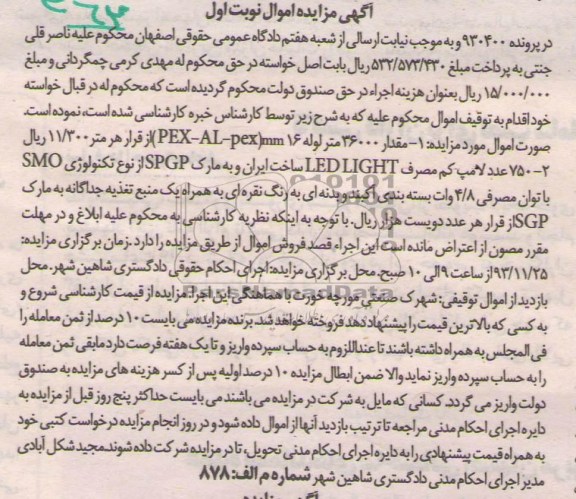 آگهی مزایده اموال نوبت اول
در پرونده ۹۳۰۴۰۰ و به موجب نیابت ارسالی از شعبه هفتم دادگاه عمومی حقوقی اصفهان محکوم علیه ناصر قلی
جنتی به پرداخت مبلغ ۵۳۲/۵۷۳/۴۳۰ ریال بابت اصل خواسته در حق محکوم له مهدی کرمی چمگردانی و مبلغ
۱۵/۰۰۰/۰۰۰ ریال بعنوان هزینه اجراء در حق صندوق دولت محکوم گردیده است که محکوم له در قبال خواسته
خود اقدام به توقیف اموال محکوم علیه که به شرح زیر توسط کارشناس خبره کارشناسی شده است، نموده است.
صورت اموال مورد مزایده: ۱- مقدار ۳۶۰۰۰ متر لوله ۱۶ mm(PEX-AL-pex) از قرار هر متر ۱۱/۳۰۰ ریال
۲- ۷۵۰ عدد لامپ کم مصرف LED LIGHT ساخت ایران و به مارک SPGP از نوع تکنولوژی SMO
با توان مصرفی ۴/۸ وات بسته بندی آکبند و بدنه ای به رنگ نقره ای به همراه یک منبع تغذیه جداگانه به مارک
SGP از قرار هر عدد دویست هزار ریال. با توجه به اینکه نظریه کارشناسی به محکوم علیه ابلاغ و در مهلت
مقرر مصون از اعتراض مانده است این اجراء قصد فروش اموال از طریق مزایده را دارد. زمان برگزاری مزایده:
۹۳/۱۱/۲۵ از ساعت ۹ الی ۱۰ صبح. محل برگزاری مزایده: اجرای احکام حقوقی دادگستری شاهین شهر. محل
بازدید از اموال توقیفی: شهرک صنعتی مورچه خورت با هماهنگی این اجرا. مزایده از قیمت کارشناسی شروع و
به کسی که بالاترین قیمت را پیشنهاد دهد فروخته خواهد شد. برنده مزایده می بایست ۱۰ درصد از ثمن معامله را
فی المجلس به همراه داشته باشند تا عنداللزوم به حساب سپرده واریز و تا یک هفته فرصت دارد مابقی ثمن معامله
را به حساب سپرده واریز نماید والا ضمن ابطال مزایده ۱۰ درصد اولیه پس از کسر هزینه های مزایده به صندوق
دولت واریز می گردد. کسانی که مایل به شرکت در مزایده می باشند می بایست حداکثر پنج روز قبل از مزایده به
دایره اجرای احکام مدنی مراجعه تا ترتیب بازدید آنها از اموال داده شود و در روز انجام مزایده درخواست کتبی خود
به همراه قیمت پیشنهادی را به دایره اجرای احکام مدنی تحویل، تا در مزایده شرکت داده شوند. مجید شکل آبادی
مدیر اجرای احکام مدنی دادگستری شاهین شهر شماره م الف: ۸۷۸